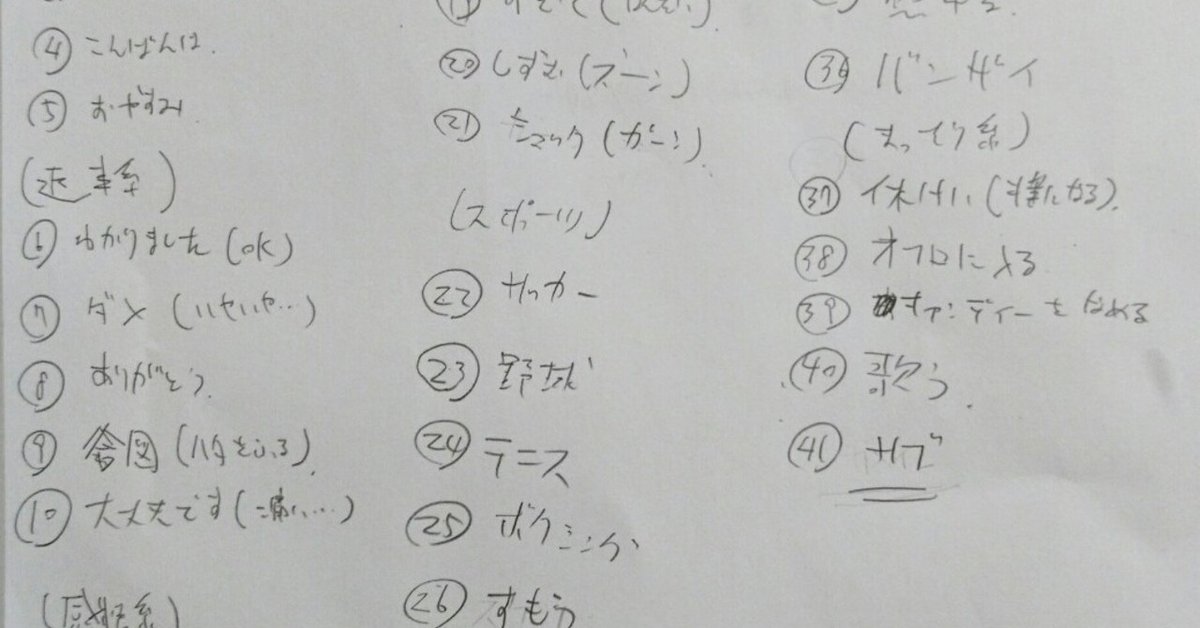 ④ こんばんは
⑤ おやすみ
(返事系)
⑥ わかりました (OK)
⑦ ダメ (いやいや…)
⑧ ありがとう
⑨ 合図 (ハタをふる)
⑩ 大丈夫です (
(感情系)
⑳ しずむ (ズーン)
㉑ (ガーン)
(スポーツ)
㉒ サッカー
㉓ 野球
㉔ テニス
㉕ ボクシング
㉖ すもう
㊱ バンザイ
(まったり系)
㊲ 休けい (横になる)
㊳ オフロに入る
㊴ キャンディーをなめる
㊵ 歌う
㊶ サブ